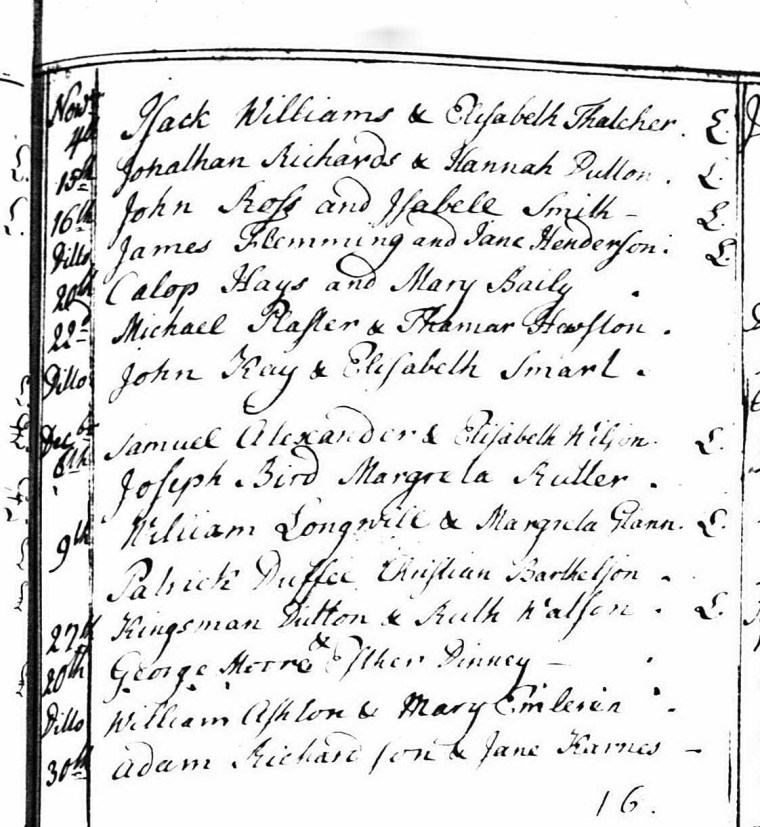 Novr 4th Jsack Williams & Elisabeth Thatcher. L.
15th Jonathan Richards & Hannah Dutton. L.
16th John Ross and Jsabell Smith - L.
Ditto James Flemming and Jane Henderson. L.
20th Calop Hays and Mary Baily.
22d Michael Plaster & Thamar Hewston.
Ditto John Kay & Elisabeth Smart.
Decbr 6th Samuel Alexander & Elisabeth Wilson. L.
Joseph Bird Margreta Rutter.
9th William Longwill & Margreta Glann. L.
Patrick Duffee Christian Barthelson.
27th Kingsman Dutton & Ruth Watson. L.
George Moore & Esther Dinney -
Ditto William Ashton & Mary Emleren -
30th Adam Richardson & Jane Karnes -
16.